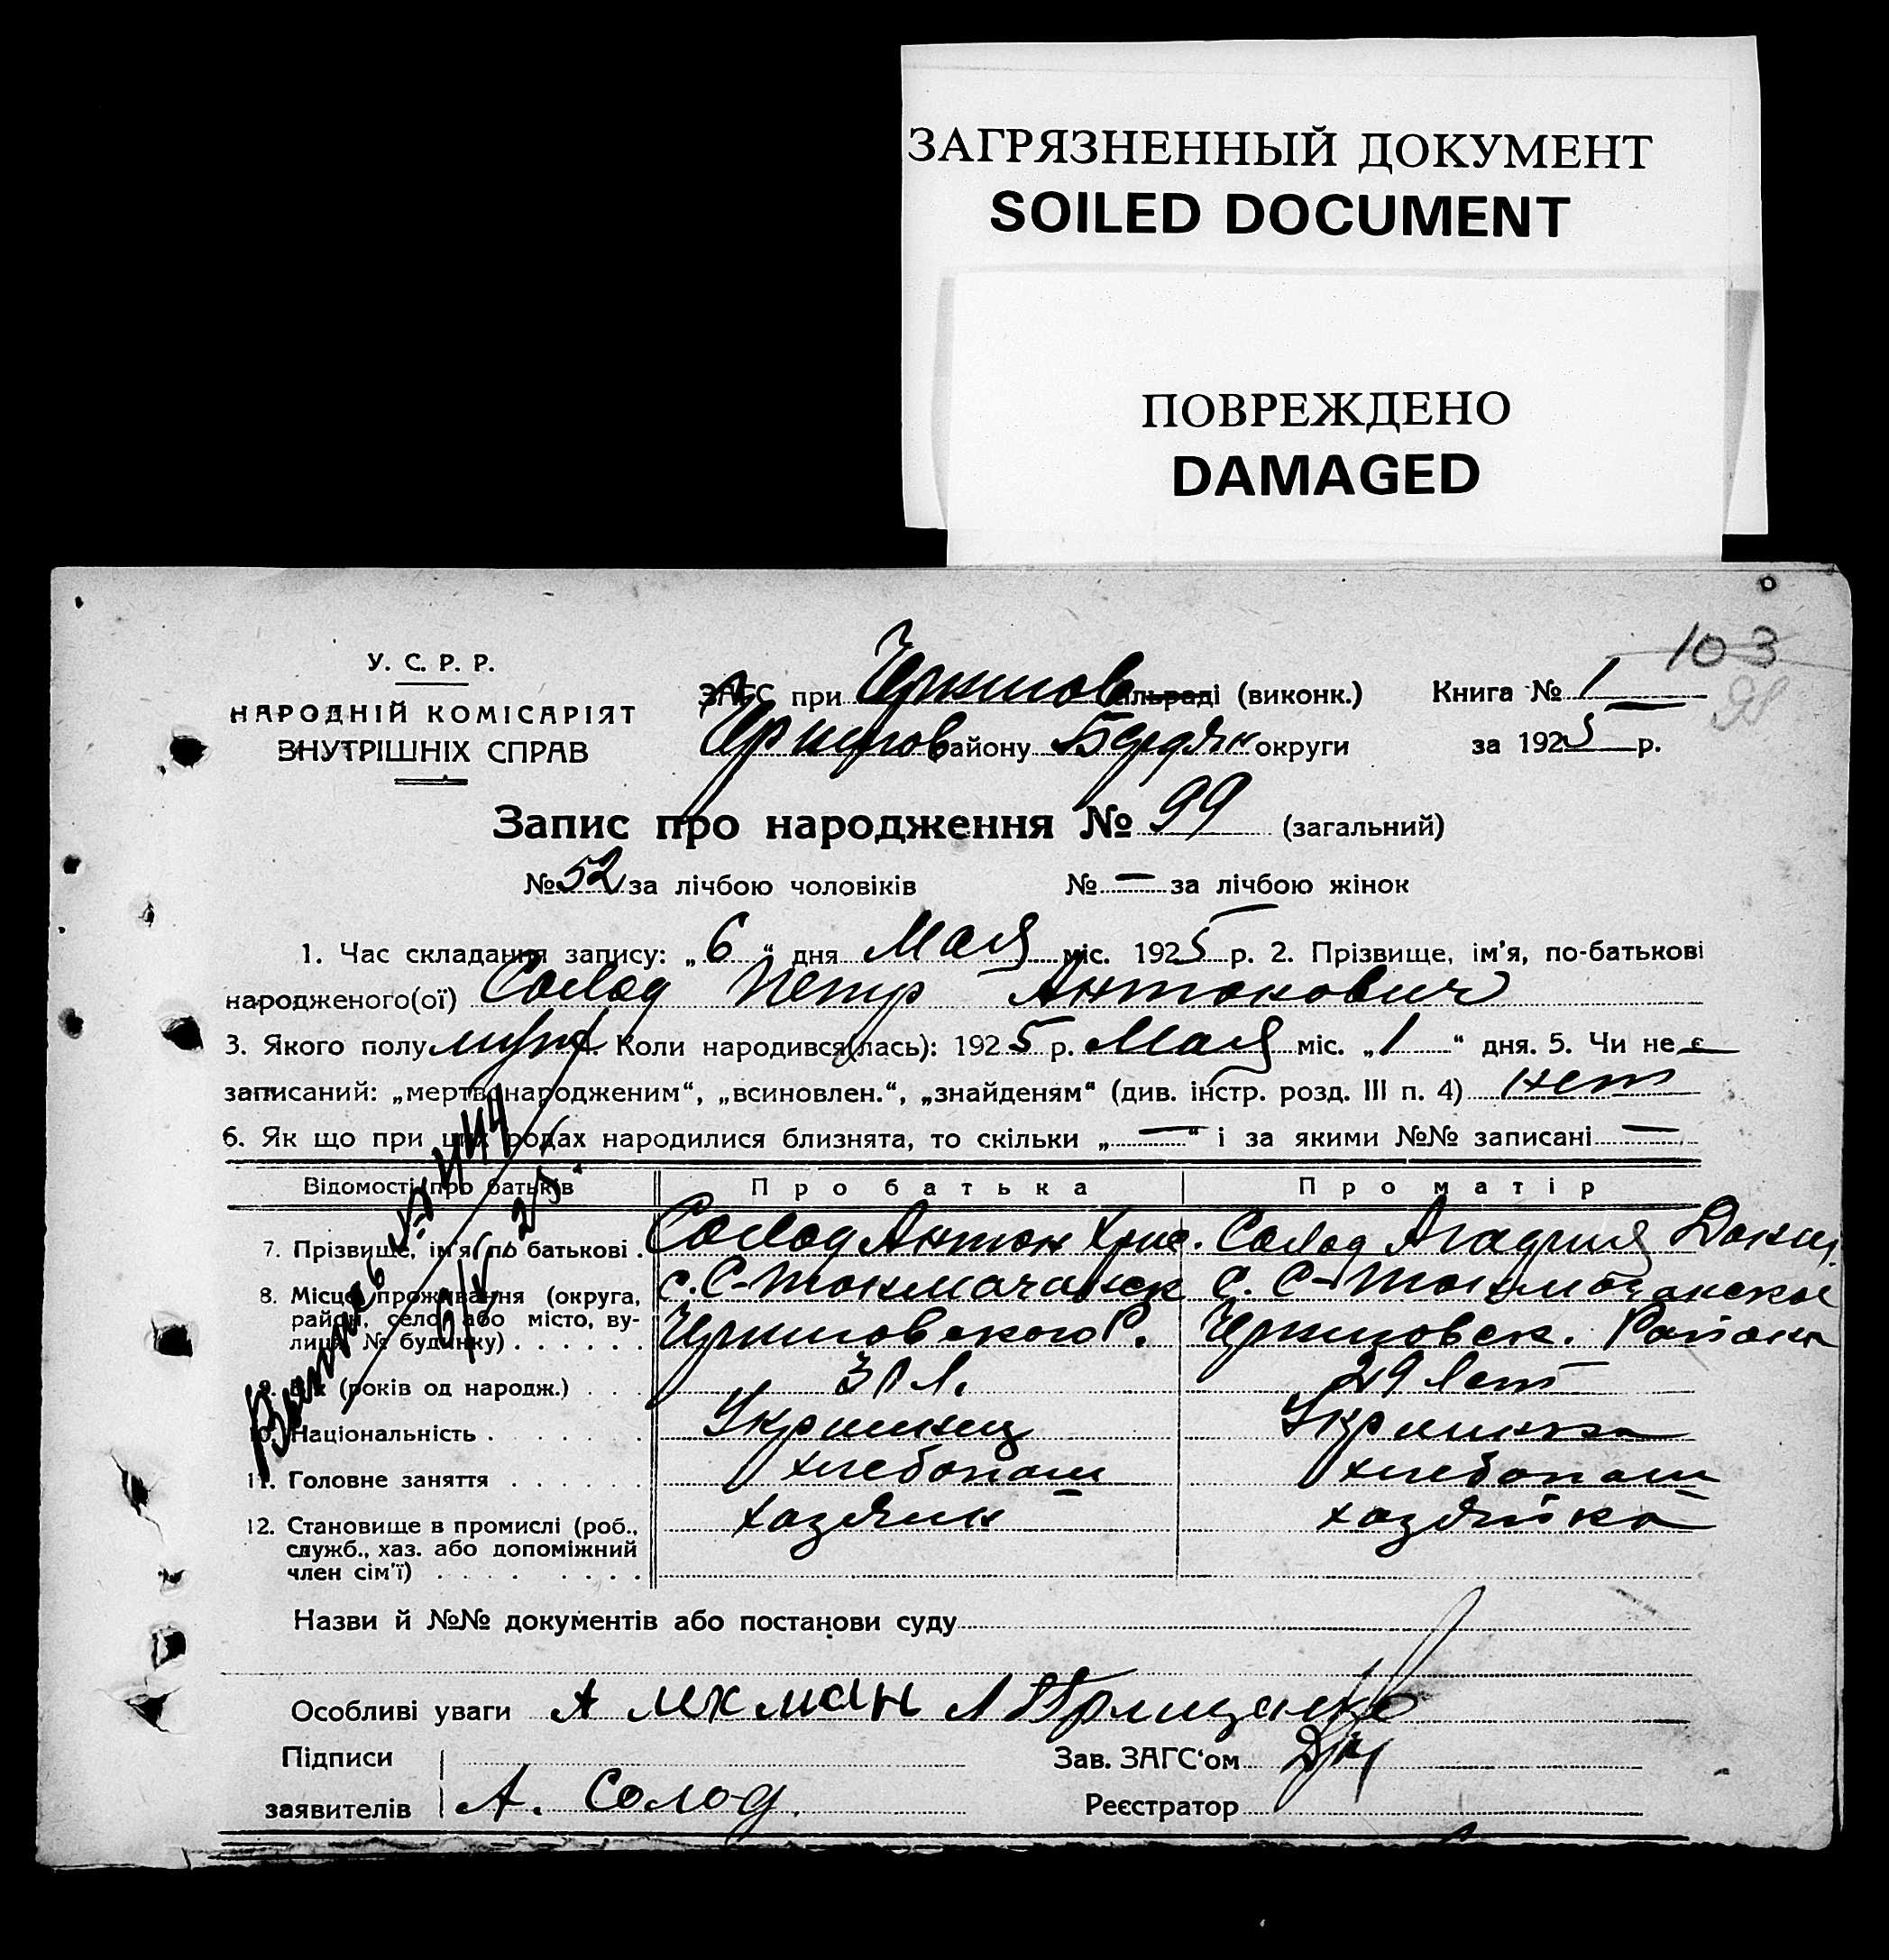 ЗАГРЯЗНЕННЫЙ ДОКУМЕНТ
SOILED DOCUMENT
ПОВРЕЖДЕНО
DAMAGED
103
98
У. С. Р. Р.
НАРОДНІЙ КОМІСАРІЯТ
ВНУТРІШНІХ СПРАВ
ЗАГС при сільраді (виконк.) Книга № 1
району Бердян округи за 1925 р.
Запис про народження № 99 (загальний)
№ 52 за лічбою чоловіків № — за лічбою жінок
1. Час складання запису: „6“ дня Мая міс. 1925 р. 2. Прізвище, ім'я, по-батькові
народженого(ої) Солод Петр Антонович
3. Якого полу муж 4. Коли народився(лась): 1925 р. Мая міс. „1“ дня. 5. Чи не є
записаний: „мертвонародженим“, „всиновлен.“, „знайденям“ (див. інстр. розд. III п. 4) нет
6. Як що при цих родах народилися близнята, то скільки „—“ і за якими №№ записані —
Відомості про батьків Про батька Про матір
7. Прізвище, ім'я, по батькові . Солод Антон Хрис. Солод Агафия
8. Місце проживання (округа, с. С-Токмачанск с. С-Токмачанское
район, село або місто, ву-
лиця, № будинку) . . . . . . Р. Района
9. Вік (років од народж.) . . . 30 л. 29 лет
10. Національність . . . . . . Украинец Украинка
11. Головне заняття . . . . . . хлебопаш хлебопаш
12. Становище в промислі (роб., хазяин хазяйка
служб., хаз. або допоміжний
член сім'ї) . . . . . . . . .
Назви й №№ документів або постанови суду
Особливі уваги
Підписи Зав. ЗАГС'ом
заявителів А. Солод. Реєстратор